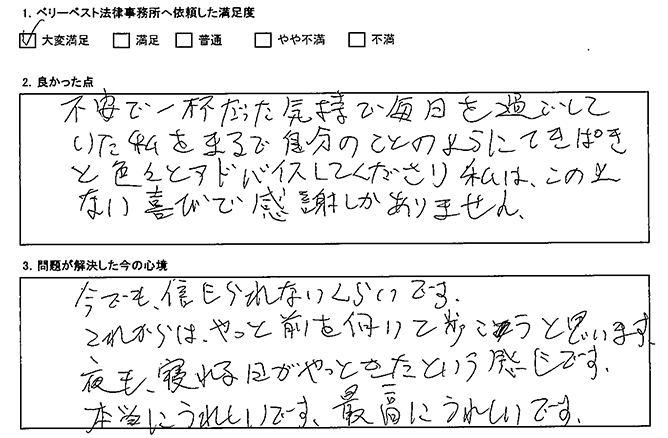 1. ベリーベスト法律事務所へ依頼した満足度
☑ 大変満足 □ 満足 □ 普通 □ やや不満 □ 不満
2. 良かった点
不安で一杯だった気持で毎日を過ごして
いた私をまるで自分のことのようにてきぱき
と色々とアドバイスしてくださり私は、この上
ない喜びで感謝しかありません。
3. 問題が解決した今の心境
今でも、信じられないくらいです。
これからは、やっと前を向いて歩こうと思います。
夜も、寝れる日がやっときたという感じです。
本当にうれしいです、最高にうれしいです。